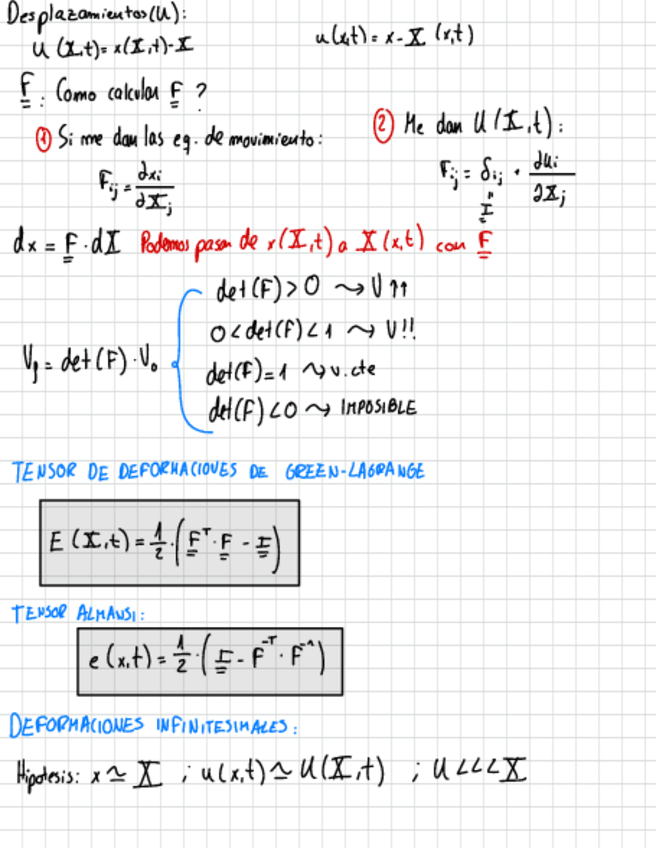 Desplazamientos (U):
U (X,t) = x(X,t) - X    u(x,t) = x - X (x,t)
F : Como calcular F ?
① Si me dan las eq. de movimiento:    ② Me dan U(X,t):
Fij = ∂xi/∂Xj    Fij = δij + ∂ui/∂Xj
" I
dx = F · dX Podemos pasar de x(X,t) a X(x,t) con F
det(F) > 0 ⇝ V ↑↑
0 < det(F) < 1 ⇝ V!!
Vf = det(F) · V₀
det(F) = 1 ⇝ v. cte
det(F) < 0 ⇝ IMPOSIBLE
TENSOR DE DEFORMACIONES DE GREEN-LAGRANGE
E (X,t) = 1/2 · (Fᵀ · F - I)
TENSOR ALMANSI:
e (x,t) = 1/2 · (I - F⁻ᵀ · F⁻¹)
DEFORMACIONES INFINITESIMALES:
Hipotesis: x ≃ X ; u(x,t) ≃ U(X,t) ; U <<< X